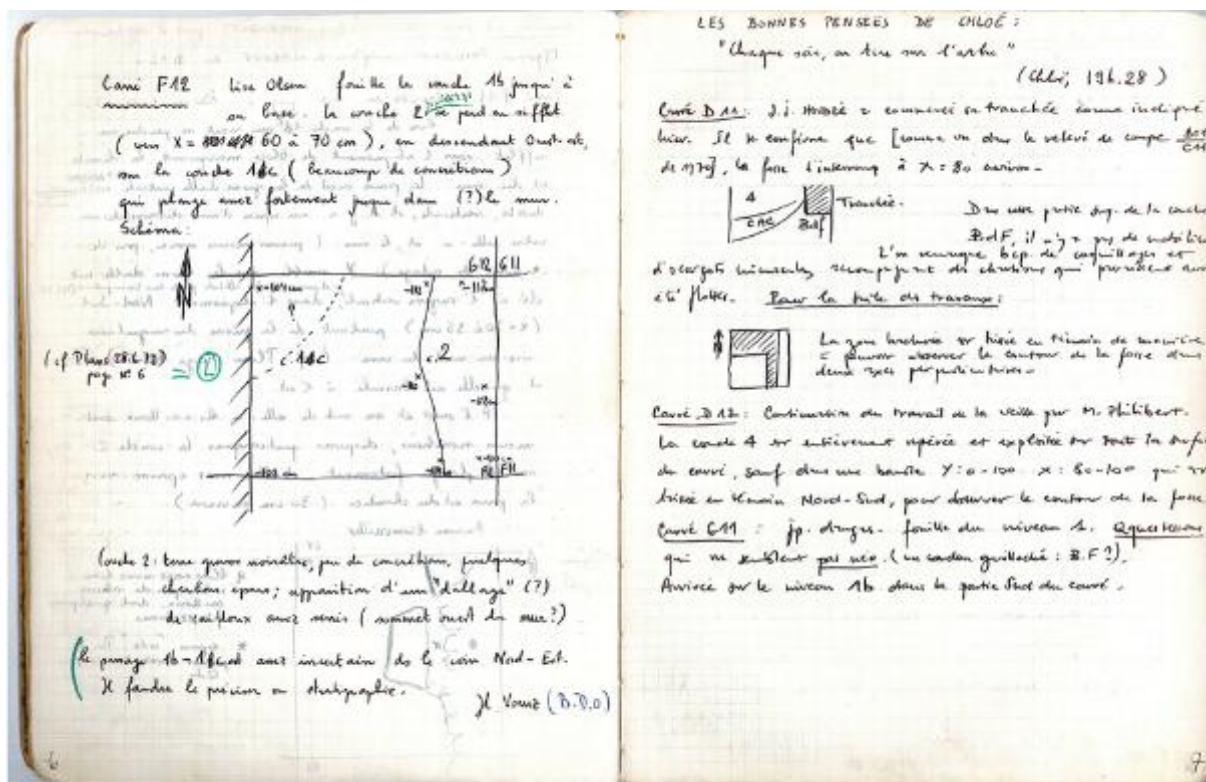 Carré F12 Lise Olsen fouille la couche 1b jusqu'à
sa base. La couche 2 se perd en sifflet
(vers X = 60 à 70 cm), en descendant Ouest-est,
sur la couche 1&c (beaucoup de concrétions)
qui plonge assez fortement jusque dans (?) le mur.
Schéma :
N
G12 G11
x-104cm
-112
?
c.1&c
c.2
(cf Plans 28.6.72)
page n° 6
= 2
F12 F11
Couche 2 : terre grasse noirâtre, peu de concrétions, quelques
charbons épars ; apparition d'un "dallage" (?)
de cailloux assez serrés (sommet ouest du mur ?)
le passage 1b-1&c est assez incertain ds le coin Nord-Est.
Il faudra le préciser en stratigraphie.
(B.D.O)
6
LES BONNES PENSÉES DE CHLOÉ :
"Chaque soir, on tire sur l'arbre"
(Chloé, 196.28)
Carré D11 : J.J. a commencé sa tranchée comme indiqué
hier. Il se confirme que [comme vu dans le relevé de coupe
de 1970], la fosse s'interromp à x = 80 environ.
4
CAC
BdF
Tranchée.
Dans cette partie sup. de la couche
BdF, il n'y a pas de mobilier
L'on remarque bcp. de coquillages et
d'escargots minuscules accompagnant des charbons qui paraissent avoir
été flottés. Pour la suite des travaux :
N
La zone hachurée est laissée en témoin de manière
à pouvoir observer le contour de la fosse dans
deux axes perpendiculaires.
Carré D12 : Continuation du travail de la veille par M. Philibert.
La couche 4 est entièrement repérée et exploitée sur toute la surface
du carré, sauf dans une bande Y : 0-100 x : 80-100 qui est
laissée en témoin Nord-Sud, pour observer le contour de la fosse
Carré G11 : jp. fouille du niveau 1. Qques tessons
qui me semblent pas néo. (un cordon guilloché : B.F ?).
Arrivée sur le niveau 1b dans la partie Sud du carré.
7